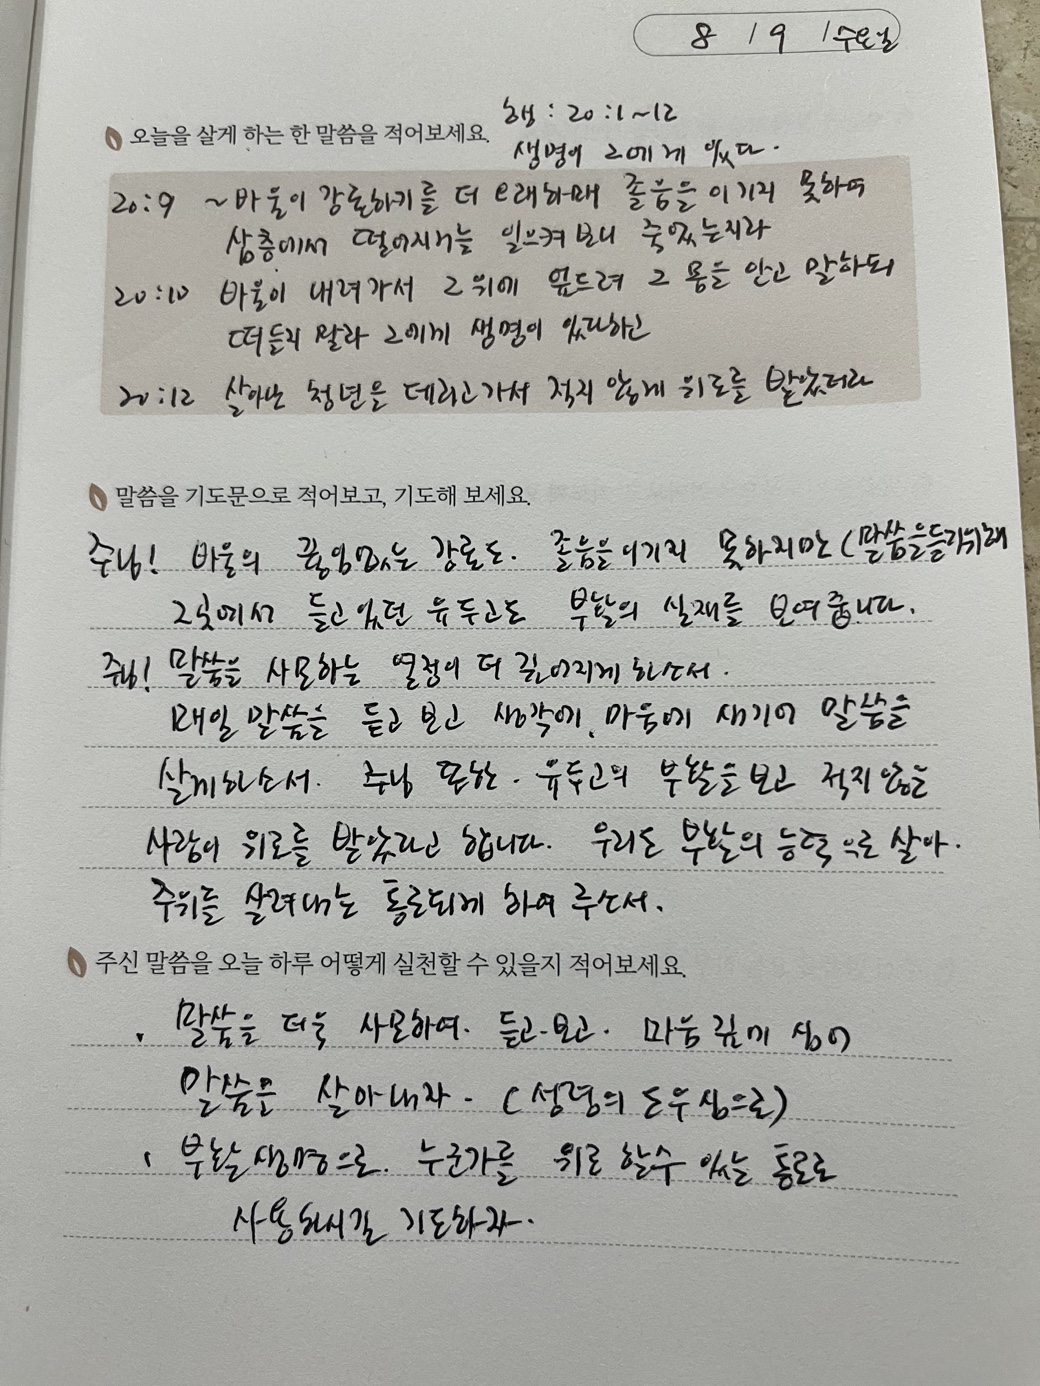 8 / 9 / 수요일
행 : 20 : 1 ~ 12
오늘을 살게 하는 한 말씀을 적어보세요.
생명이 그에게 있다.
20:9 ~ 바울이 강론하기를 더 오래하매 졸음을 이기지 못하여
삼층에서 떨어지거늘 일으켜 보니 죽었는지라
20:10 바울이 내려가서 그 위에 엎드려 그 몸을 안고 말하되
떠들지 말라 그에게 생명이 있다하고
20:12 살아난 청년을 데리고가서 적지 않게 위로를 받았더라
말씀을 기도문으로 적어보고, 기도해 보세요.
주님! 바울의 끊임없는 강론도. 졸음을 이기지 못하지만 (말씀을듣기위해
그곳에서 듣고 있던 유두고도 부활의 실재를 보여줍니다.
주님! 말씀을 사모하는 열정이 더 깊어지게 하소서.
매일 말씀을 듣고 보고 생각에, 마음에 새기어 말씀을
살게하소서. 주님 또한. 유두고의 부활을 보고 적지않은
사람이 위로를 받았다고 합니다. 우리도 부활의 능력으로 살아.
주위를 살려내는 통로되게 하여 주소서.
주신 말씀을 오늘 하루 어떻게 실천할 수 있을지 적어보세요.
· 말씀을 더욱 사모하여. 듣고. 보고. 마음 깊게 심어
말씀을 살아내자. (성령의 도우심으로)
· 부활생명으로. 누군가를 위로 할수 있는 통로로
사용하시길 기도하자.